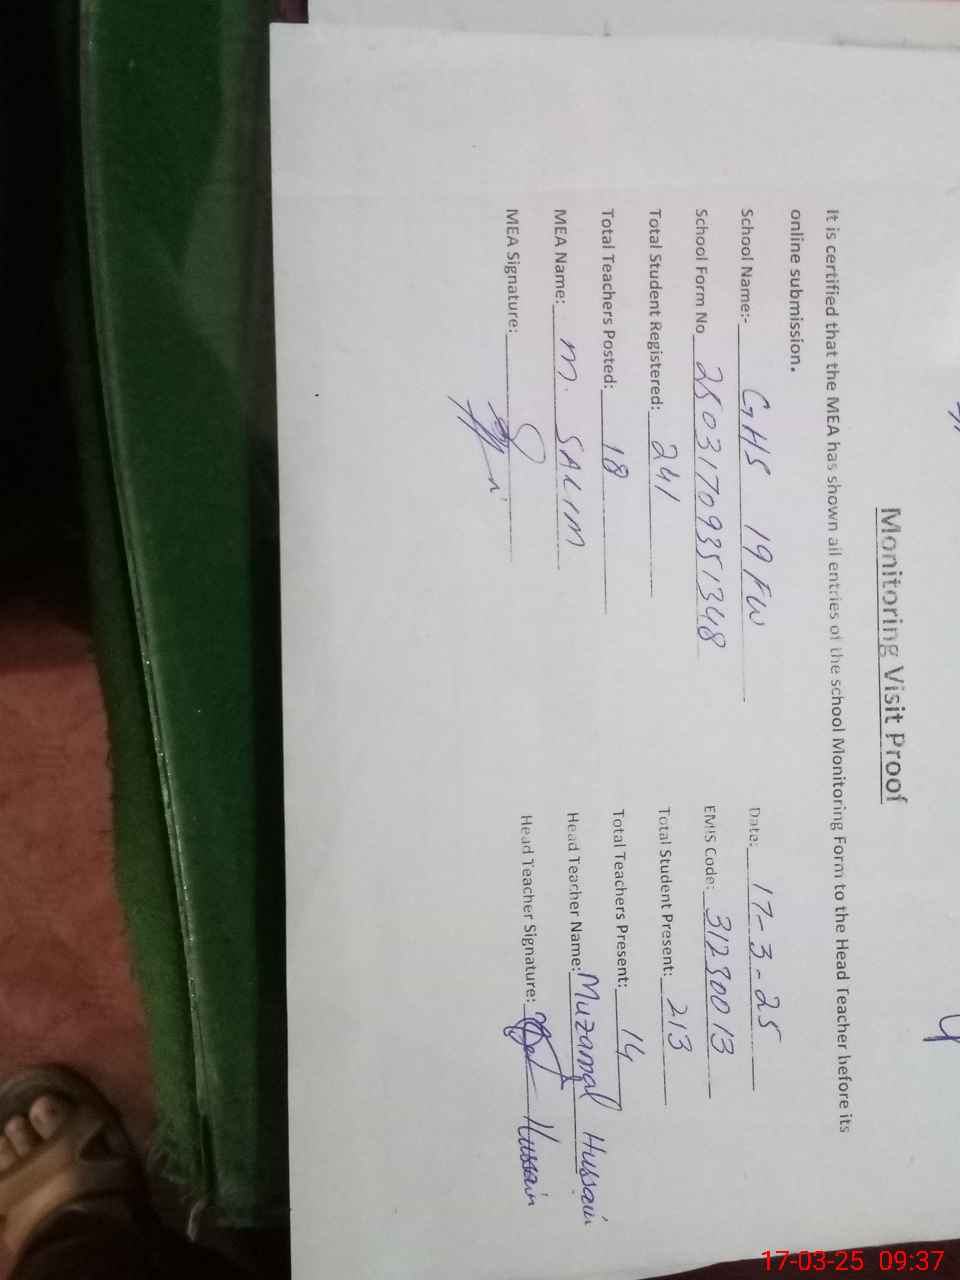 Monitoring Visit Proof
It is certified that the MEA has shown all entries of the school Monitoring Form to the Head Teacher before its
online submission.
School Name:- GHS 19 FW Date: 17-3-25
School Form No 2503170935 1348 EMIS Code: 31230013
Total Student Registered: 241 Total Student Present: 213
Total Teachers Posted: 18 Total Teachers Present: 14
MEA Name: M. SALIM Head Teacher Name: Muzamal Hussain
MEA Signature: Head Teacher Signature: Hussain
17-03-25 09:37